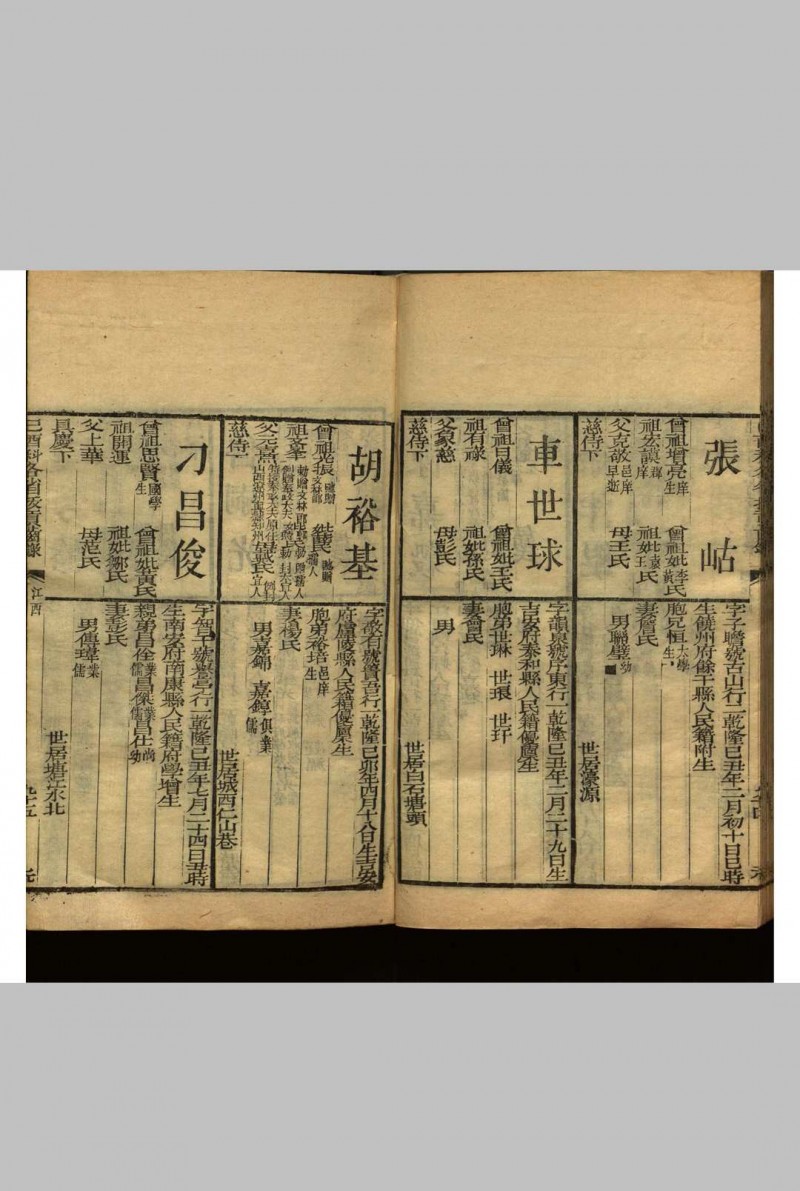 張岵
曾祖增亮庠生
祖宏謨庠
父克敬邑庠早逝
慈侍下
曾祖妣李氏黃
祖妣袁氏王
母王氏
字子瞻號古山行二乾隆己丑年二月初十日巳時
生饒州府餘干縣人民籍附生
胞兄恒太學生
妻曾氏
男聯璧幼
世居濠源
車世球
曾祖日儀
祖有祿
父象慈
慈侍下
曾祖妣王氏
祖妣孫氏
母彭氏
字韻泉號序東行一乾隆己丑年二月二十九日生
吉安府泰和縣人民籍優廩生
胞弟世琳 世環 世玕
妻曾氏
男
世居白石塘頭
胡裕基
曾祖兆張
文林郎
祖峯
父元熹
慈侍下
字敬有號寶吾行一乾隆己卯年四月十八日生吉安
府廬陵縣人民籍優廩生
胞弟裕培邑庠生
妻楊氏
男嘉錦 嘉錞俱業儒
世居城西仁山巷
刁昌俊
曾祖思賢國學生
祖開運
父上華
具慶下
曾祖妣黃氏
祖妣鄒氏
母范氏
字智千號譽亭行一乾隆己丑年七月二十四日丑時
生南安府南康縣人民籍府學增生
親弟昌佺業儒昌傑業儒昌仕尚幼
妻彭氏
男傳瑋業儒
世居塘江水北
己酉科各省拔貢同年錄
江西
九十五
元